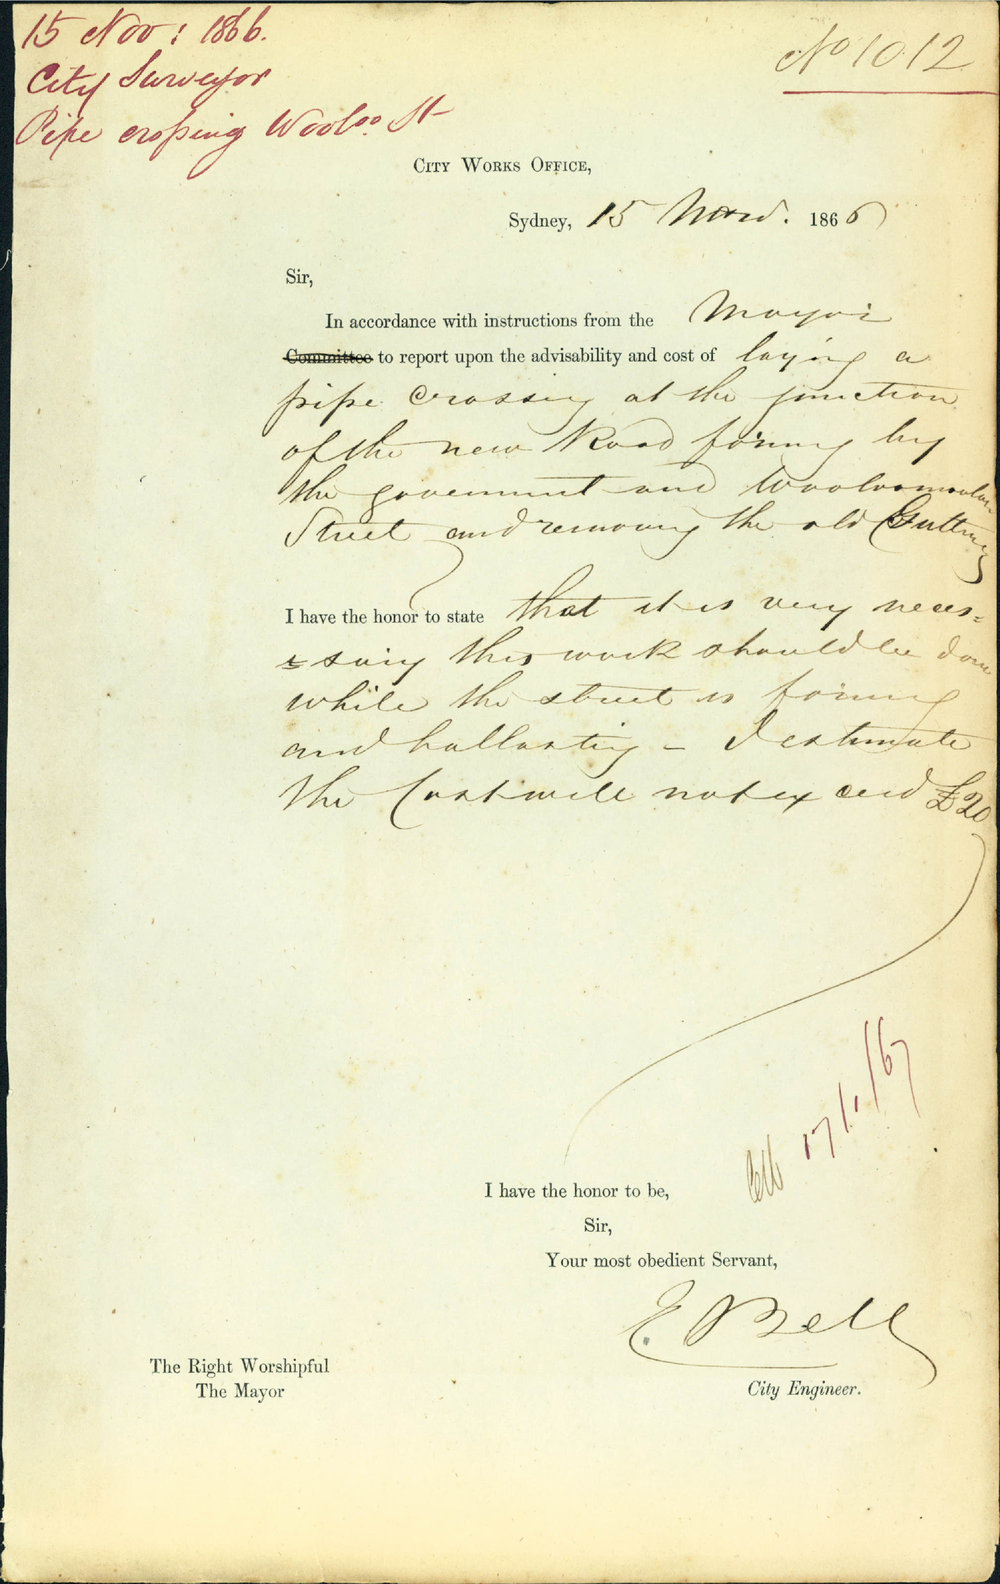 15 Nov: 1866.
City Surveyor
Pipe crossing Wooloo St
No 1012
City Works Office,
Sydney, 15 Novr. 1866
Sir,
In accordance with instructions from the Mayor
Committee to report upon the advisability and cost of laying a
pipe crossing at the junction
of the new Road forming by
the government and Woolloomooloo
Street and removing the old Guttering
I have the honor to state that it is very neces=
=sary this work should be done
while the street is forming
and ballasting – I estimate
the Cost will not exceed £20
17/1/67
I have the honor to be,
Sir,
Your most obedient Servant,
E Bell
City Engineer.
The Right Worshipful
The Mayor